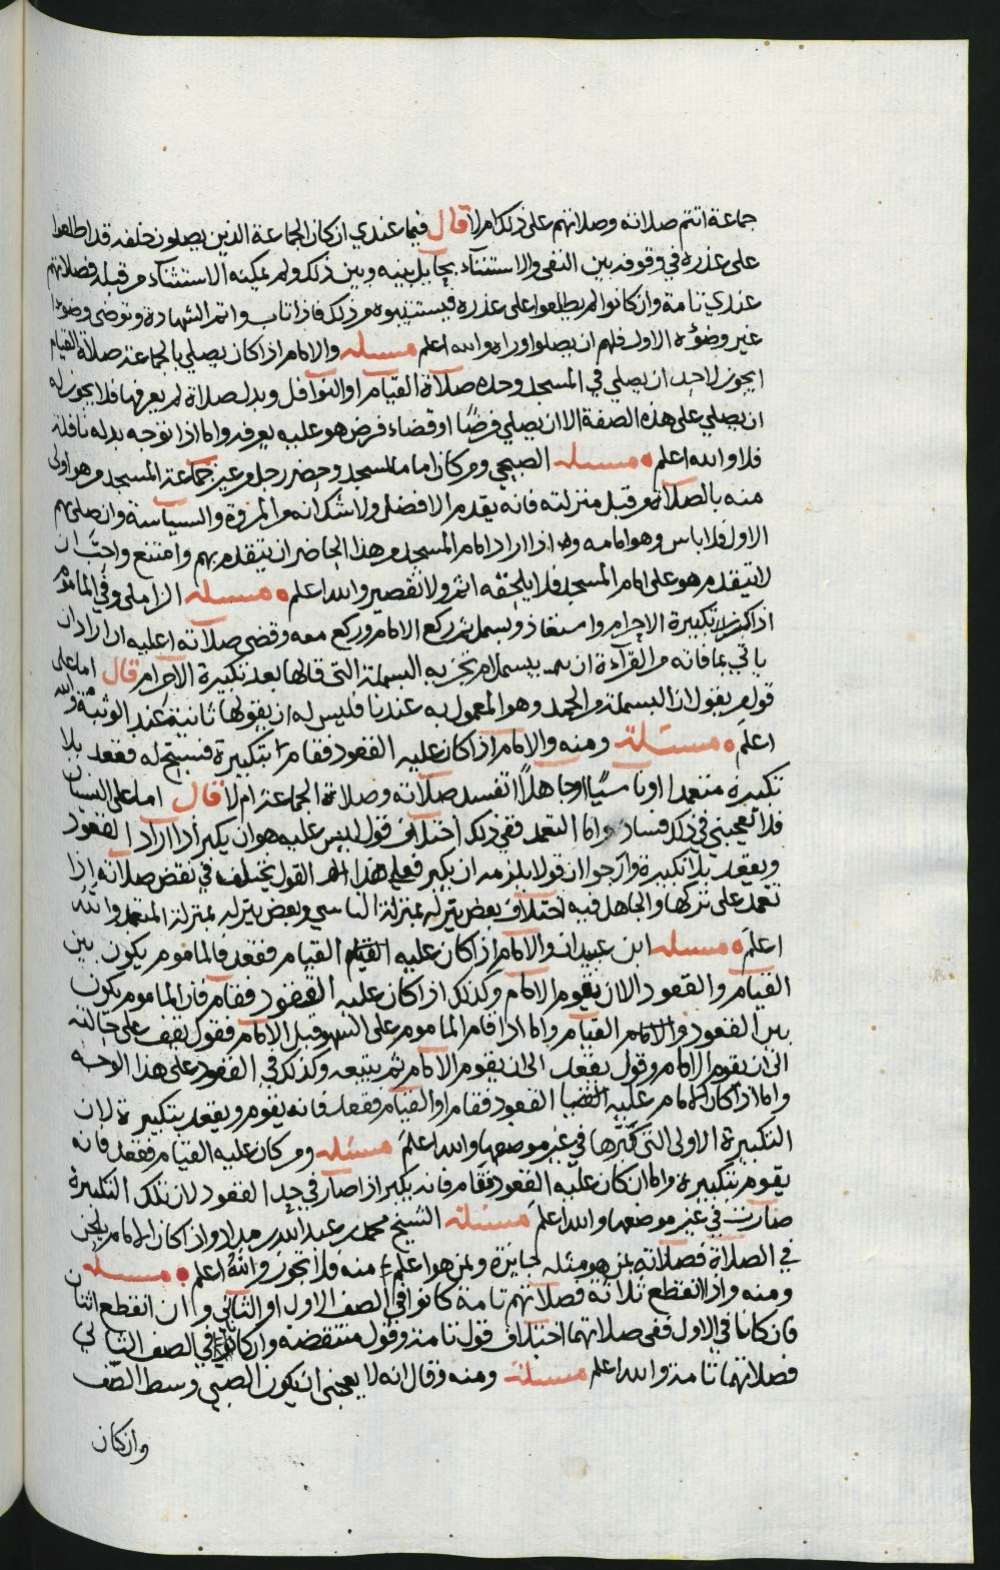 جماعة اتتم صلاته وصلاتهم على ذلك ام لا قال فيما عندي ان كان الجماعة الذين يصلون خلفه قد اطلعوا
على عذره في وقوفه بين النفي والاستثناء بحايل بينه وبين ذلك ولم يمكنه الاستثناء من قبله فصلاتهم
عندي تامة وان كانوا لم يطلعوا على عذره فيستتيبوه من ذلك فاذا تاب واتم الشهادة وتوضى وضوءا
غير وضوءه الاول فلهم ان يصلوا وراه والله اعلم مسئله والامام اذا كان يصلي بالجماعة صلاة القيام
ايجوز لاحد ان يصلي في المسجد وحده صلاة القيام او النوافل وبدل صلاة لم يعرفها فلا يجوز له
ان يصلي على هذه الصفة الا ان يصلي فرضا او قضاء فرض هو عليه يعرفه واما اذا توجه بدله نافلة
فلا والله اعلم مسئله الصبحي ومن كان اماما لمسجد وحضر رجل من غير جماعة المسجد وهو اولى
منه بالصلاة من قبل منزلته فانه يقدم الافضل ولا شك انه من المروة والسياسة وان صلى بهم
الاول فلا باس وهو امامه واذا اراد امام المسجد من هذا الحاضر ان يتقدم بهم وامتنع واحب ان
لا يتقدم هو على امام المسجد فلا يلحقه اثم ولا تقصير والله اعلم مسئله الزاملي وفي الماموم
اذا كبر تكبيرة الاحرام واستعاذ وبسمل ثم ركع الامام وركع معه وقضى صلاته اعليه اذا اراد ان
ياتي بما فاته من القرآءة ان يبسمل ام تجزيه البسملة التي قالها بعد تكبيرة الاحرام قال اما على
قول من يقول ان البسملة من الحمد وهو المعمول به عندنا فليس له ان يقولها ثانية عند الوثبة والله
اعلم مسئلة ومنه والامام اذا كان عليه القعود فقام بتكبيرة فسبح له فقعد بلا
تكبيرة متعمدا او ناسيا او جاهلا اتفسد صلاته وصلاة الجماعة ام لا قال اما على النسيان
فلا تعجبني في ذلك فساد واما التعمد ففي ذلك اختلاف قول ليس عليه هو ان يكبر اذا اراد القعود
ويقعد بلا تكبيرة وارجوا ان قولا يلزمه ان يكبر فعلى هذا القول يختلف في نقض صلاته اذا
تعمد على تركها والجاهل فيه اختلاف بعض ينزله بمنزلة الناسي وبعض ينزله بمنزلة المتعمد والله
اعلم مسئله ابن عبيدان والامام اذا كان عليه القيام فقعد فالماموم يكون بين
القيام والقعود الا ان يقوم الامام وكذلك اذا كان عليه القعود فقام فان الماموم يكون
بين القعود والقيام واما اذا قام الماموم على السهو قبل الامام فقول يقف على حالته
الى ان يقوم الامام وقول يقعد الى ان يقوم الامام ثم يتبعه وكذلك في القعود على هذا الوجه
واما اذا كان الامام عليه القعود فقام او القيام فقعد فانه يقوم ويقعد بتكبيرة لان
التكبيرة الاولى التي كبرها في غير موضعها والله اعلم مسئله ومن كان عليه القيام فقعد فانه
يقوم بتكبيرة واما ان كان عليه القعود فقام فانه يكبر اذا صار في حد القعود لان تلك التكبيرة
صارت في غير موضعها والله اعلم مسئلة الشيخ محمد بن عبدالله بن مداد واذا كان الامام يلحن
في الصلاة فصلاته بمن هو مثله جايزة وبمن هو اعلم منه فلا تجوز والله اعلم مسئله
ومنه واذا انقطع ثلاثة فصلاتهم تامة كانوا في الصف الاول او الثاني وان انقطع اثنان
فان كانا في الاول ففي صلاتهما اختلاف قول تامة وقول منتقضة وان كانا في الصف الثاني
فصلاتهما تامة والله اعلم مسئلة ومنه وقال انه لا يعجبني ان يكون الصبي وسط الصف
وان كان